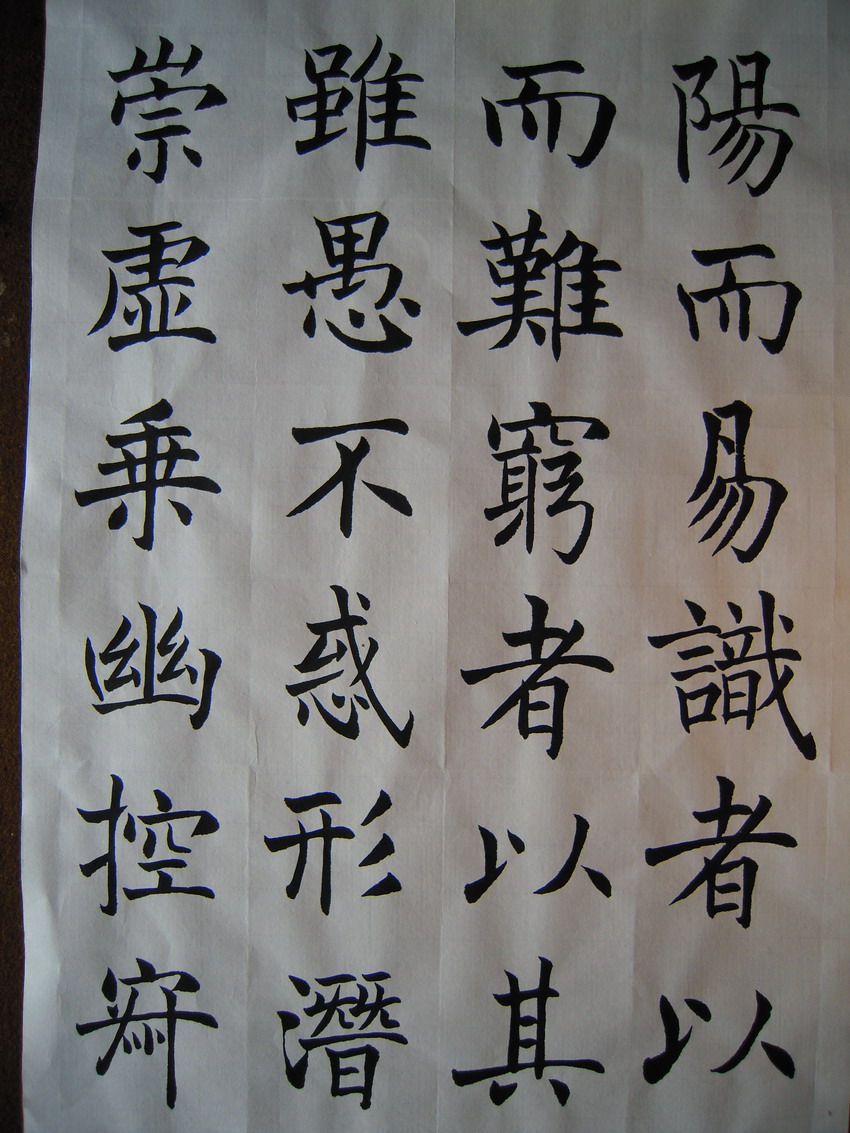 陽而易識者以
而難窮者以其
雖愚不惑形潛
崇虚乗幽控寂